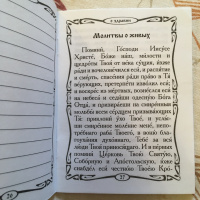 О ЗДРАВИИ
Молитвы о живых
Помяни, Господи Иисусе
Христе, Боже наш, милости и
щедроты Твоя от века сущия, ихже
ради и вочеловечитися, и распятие
и смерть, спасения ради право в Тя
верующих, претерпети изволил еси,
и воскрес из мертвых, вознеслся еси
на небеса и седиши одесную Бога
Отца, и призираеши на смиренныя
мольбы всем сердцем призывающих
Тя: приклони ухо Твое, и услыши
смиренное моление мене, непотреб-
наго раба Твоего, в воню благоу-
хания духовнаго, Тебе за вся
люди Твоя приносящаго. И в пер-
вых помяни Церковь Твою Святую,
Соборную и Апостольскую, юже
снабдел еси честною Твоею Кро-
27
26